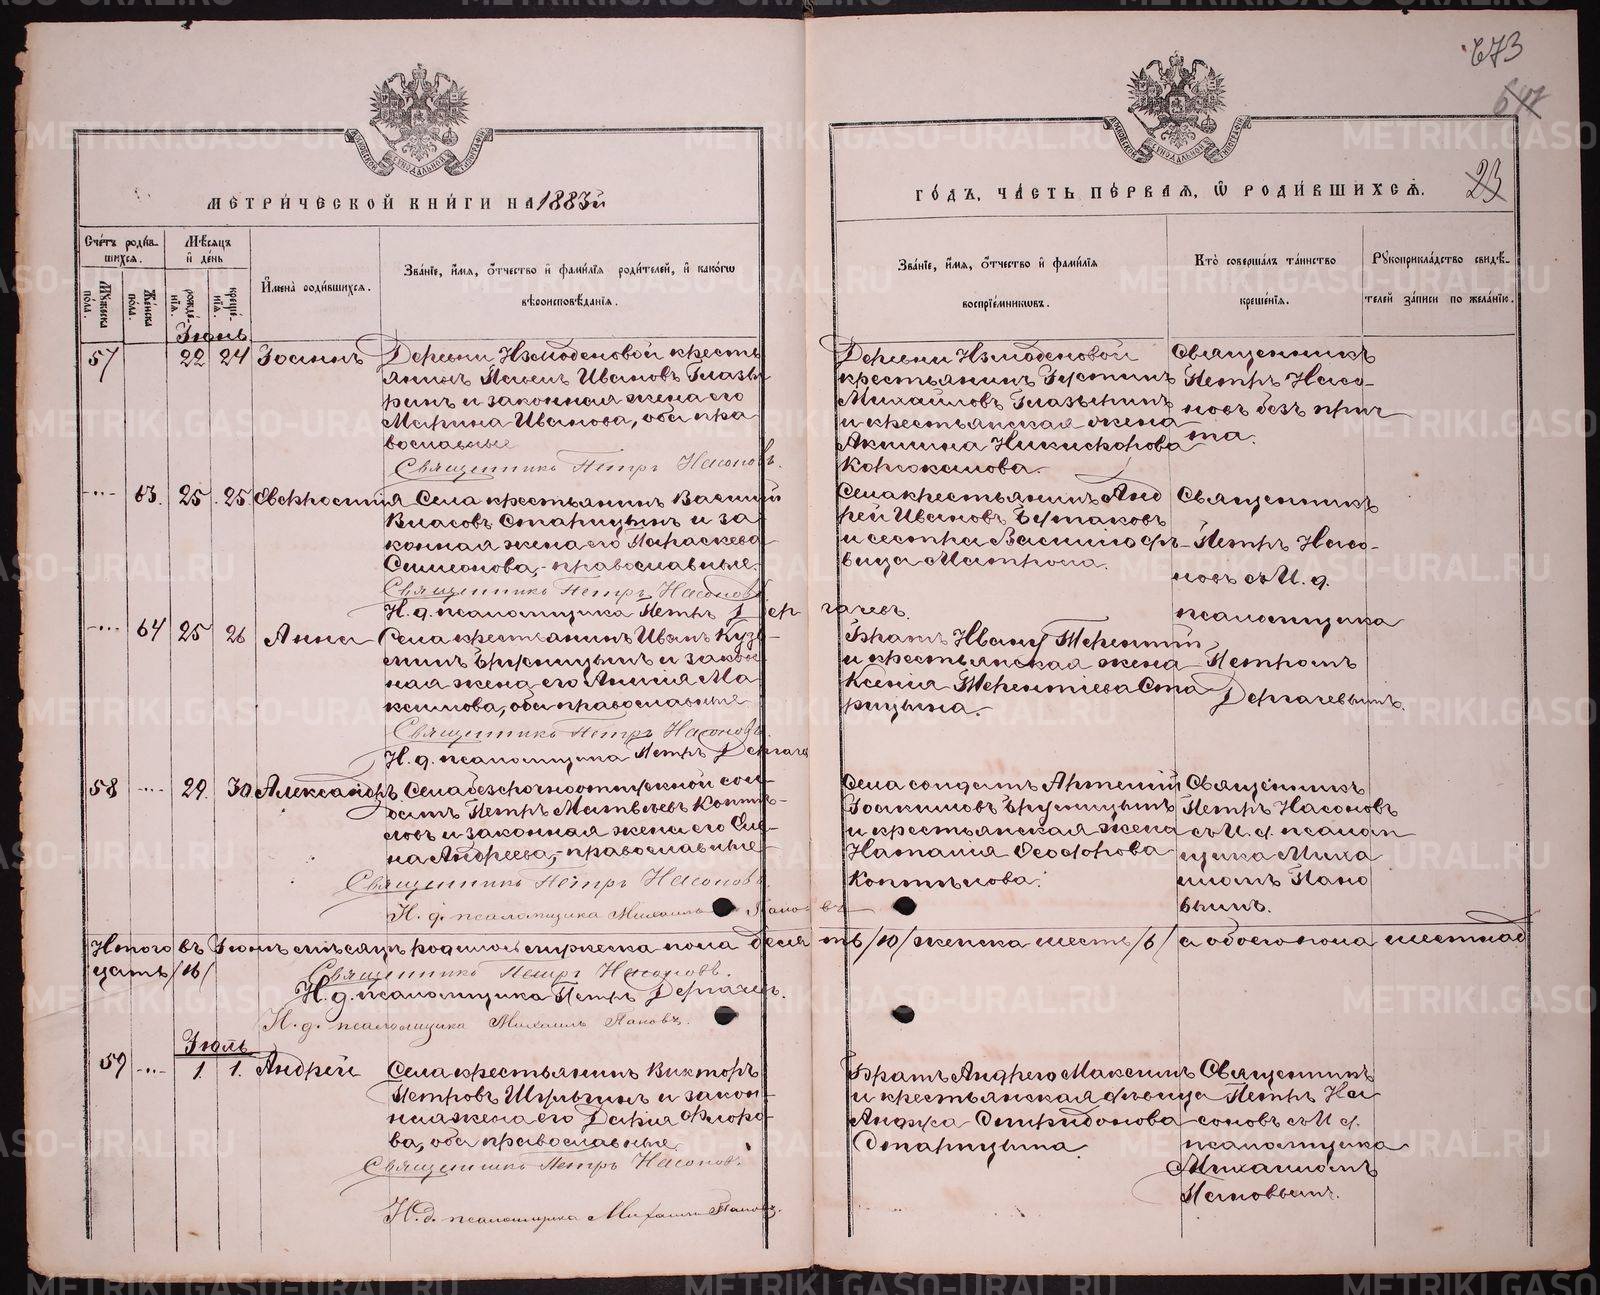 673
647
23
МЕТРИ́ЧЕСКОЙ КНИ́ГИ НА 1883й
ГО́ДЪ, ЧА́СТЬ ПЕ́РВАЯ, Ѿ РОДИ́ВШИХСЯ.
Сче́тъ роди́в-
шихся.
Му́жеска по́ла.
Же́нска по́ла.
Мѣ́сяцъ и де́нь
рожде́-нїя.
креще́-нїя.
И҆мена̀ роди́вшихся.
Зва́нїе, и҆́мя, ѻ҆́тчество и҆ фами́лїя роди́телей, и҆ како́гѡ
вѣроисповѣ́данїя.
Зва́нїе, и҆́мя, ѻ҆́тчество и҆ фами́лїя
воспрїе́мниковъ.
Кто̀ соверша́лъ та́инство
креще́нїя.
Рꙋкоприкла́дство свидѣ́-
телей за́писи по жела́нїю.
Іюнь
57 22 24 Іоаннъ
Деревни Измоденовой кресть
янинъ Павелъ Ивановъ Глазы
ринъ и законная жена его
Марина Иванова, оба пра
вославные
Священникъ Петръ Насоновъ.
Деревни Измоденовой
крестьянинъ Іустинъ
Михаиловъ Глазыринъ
и крестьянская жена
Акилина Никифорова
Коржокамова.
Священникъ
Петръ Насо-
новъ безъ прич
та.
63. 25 25 Евфросинія
Села крестьянинъ Василій
Власовъ Старицынъ и за
конная жена его Параскева
Симеонова, православные.
Священникъ Петръ Насоновъ
И. д. псаломщика Петръ Дергачевъ.
Села крестьянинъ Анд
рей Ивановъ Бутаковъ
и сестра Василію дѣ-
вица Матрона.
Священникъ
Петръ Насо-
новъ съ И. д.
псаломщика
Петромъ
Дергачевымъ.
64 25 26 Анна
Села крестьянинъ Иванъ Кузь
минъ Брусницынъ и закон
ная жена его Анисія Ма
ксимова, оба православные
Священникъ Петръ Насоновъ.
И. д. псаломщика Петръ Дергаче
Братъ Ивану Терентій
и крестьянская жена
Ксенія Терентіева Ста
рицына.
58 29. 30 Александръ
Села безсрочноотпускной сол-
датъ Петръ Матвѣевъ Коптѣ-
ловъ и законная жена его Еле-
на Андреева, православные
Священникъ Петръ Насоновъ.
И. д. псаломщика Михаилъ Пановъ
Села солдатъ Артемій
Іоакимовъ Брусницынъ
и крестьянская жена
Наталія Ѳеодорова
Коптѣлова.
Священникъ
Петръ Насоновъ
съ И. д. псалом
щика Миха
иломъ Пано
вымъ.
Итого въ Іюнѣ мѣсяцѣ родилось мужеска пола десять /10/ женска шесть /6/ а обоего пола шестнад
цать /16/
Священникъ Петръ Насоновъ.
И. д. псаломщика Петръ Дергачевъ.
И. д. псаломщика Михаилъ Пановъ.
Іюль
59 1. 1. Андрей
Села крестьянинъ Викторъ
Петровъ Шульгинъ и закон
ная жена его Дарія Флоро
ва, оба православные
Священникъ Петръ Насоновъ.
И. д. псаломщика Михаилъ Пановъ.
Братъ Андрею Максимъ
и крестьянская дѣвица
Анфиса Спиридонова
Старицына.
Священникъ
Петръ На
соновъ съ И. д.
псаломщика
Михаиломъ
Пановымъ.
METRIKI.GASO-URAL.RU